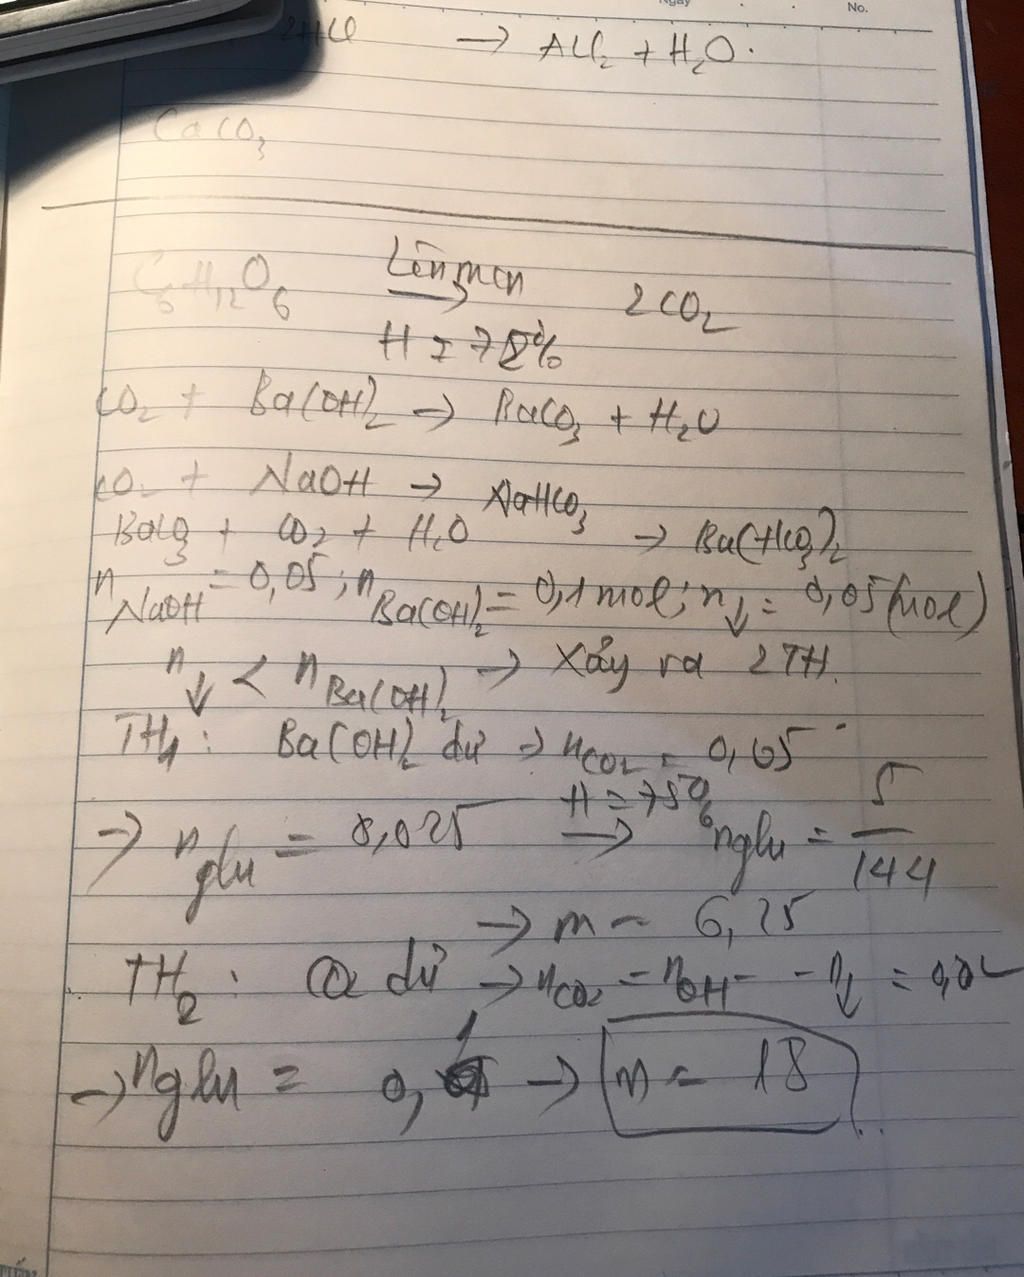 Ngày
No.
2HCl → AlCl₂ + H₂O.
CaCO₃
C₆H₁₂O₆ Lên men → 2CO₂
H = 75%
CO₂ + Ba(OH)₂ → BaCO₃ + H₂O
CO₂ + NaOH → NaHCO₃
BaCO₃ + CO₂ + H₂O → Ba(HCO₃)₂
n NaOH = 0,05; n Ba(OH)₂ = 0,1 mol; n↓ = 0,05 (mol)
n↓ < n Ba(OH)₂ → Xảy ra 2TH.
TH₁: Ba(OH)₂ dư → nCO₂ = 0,05
→ n glu = 0,025 H = 75% → nglu = 5/144
→ m = 6,25
TH₂: CO₂ dư → nCO₂ = nOH⁻ - n↓ = 0,2
→ nglu = 0,1 → m = 18